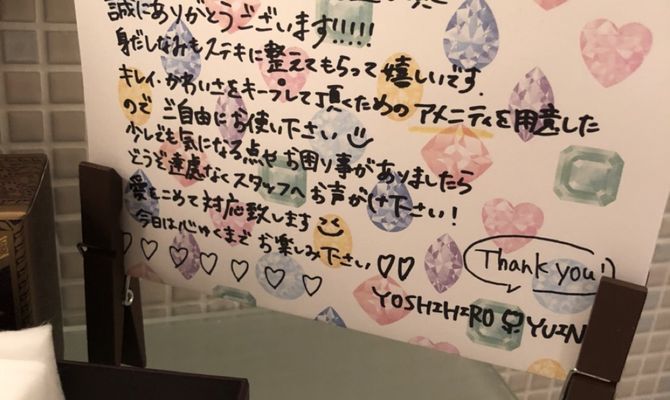 誠にありがとうございます!!!!!
身だしなみもステキに整えてもらって嬉しいです.
キレイ・かわいさをキープして頂くためのアメニティを用意した
ので ご自由にお使い下さい
少しでも気になる点や お困り事がありましたら
どうぞ遠慮なくスタッフへ お声がけ下さい!
愛をこめて対応致します
今日は心ゆくまで お楽しみ下さい♡♡
♡♡♡♡♡♡♡♡
Thank you!
YOSHIHIRO YUIN